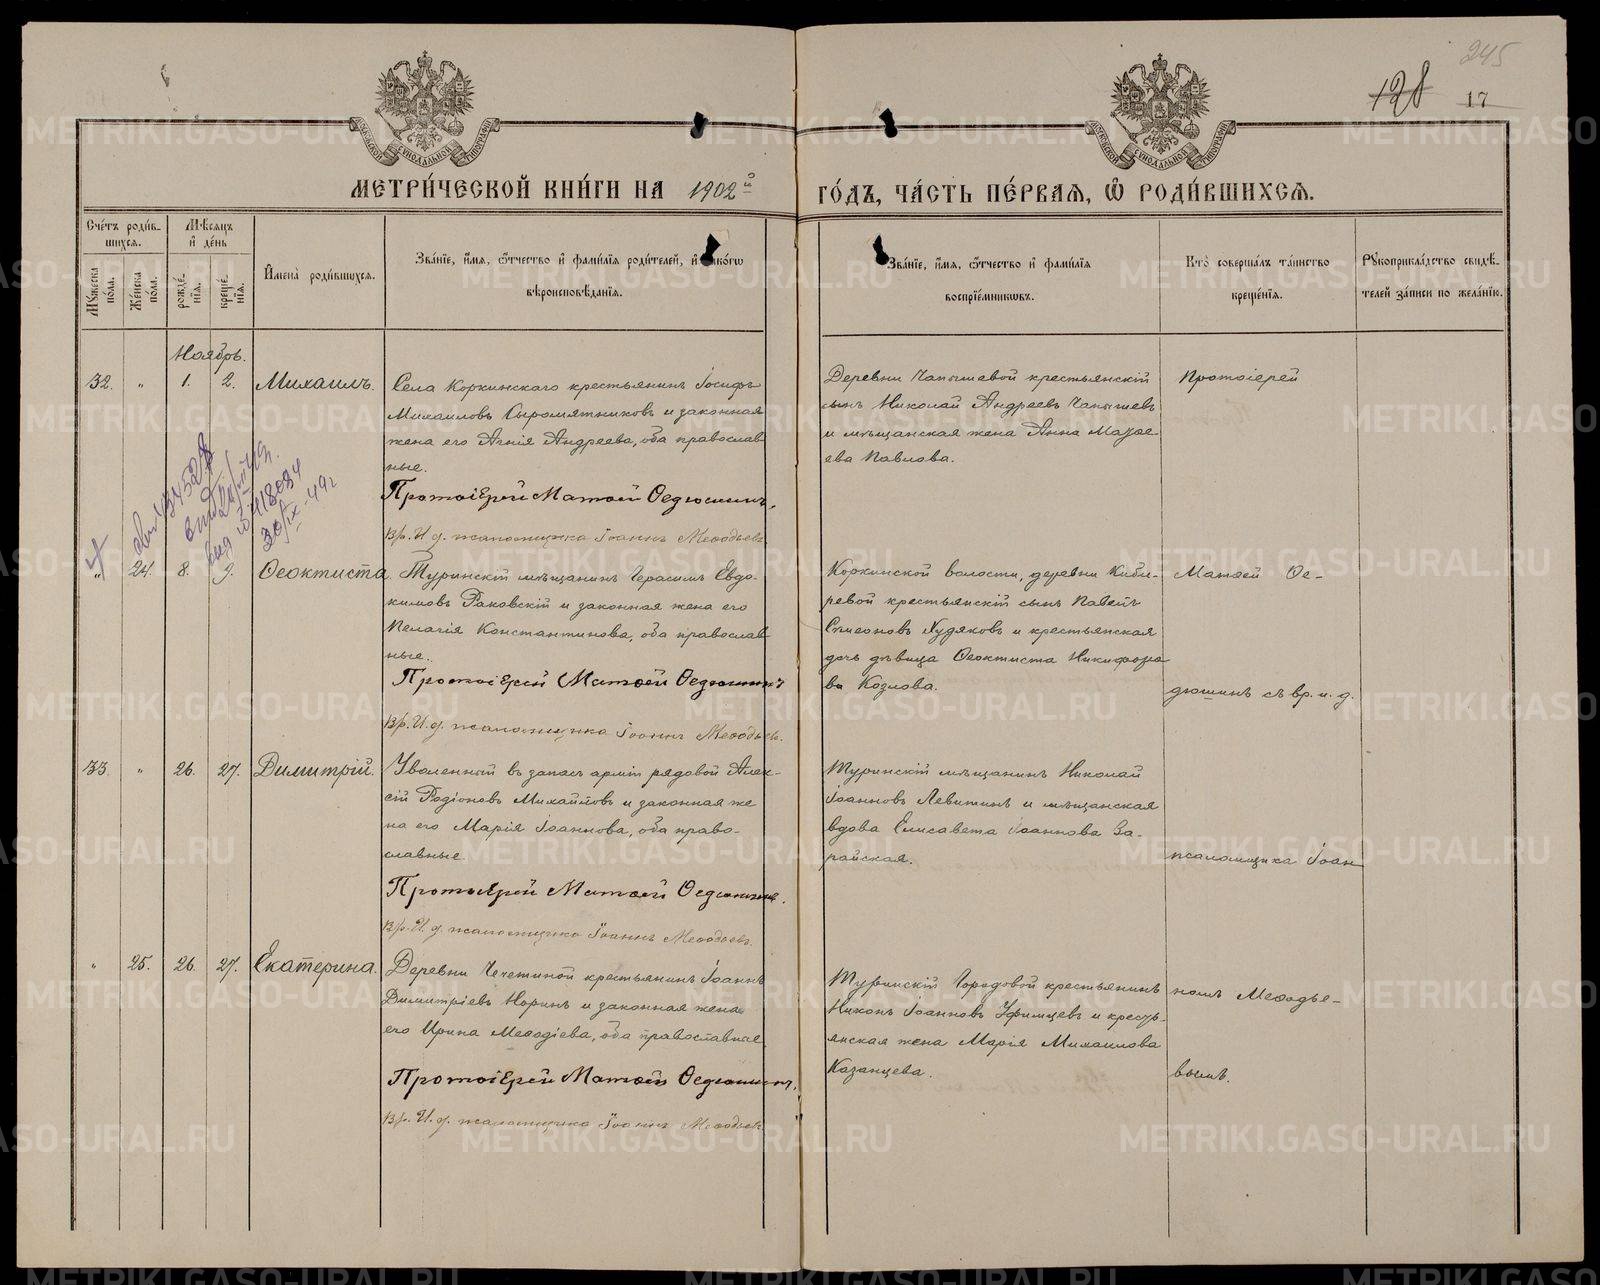 245
128 17
МЕТРИ́ЧЕСКОЙ КНИ́ГИ НА 1902й ГО́ДЪ, ЧА́СТЬ ПЕ́РВАѦ, Ѿ РОДИ́ВШИХСѦ.
Сче́тъ роди́в-
шихсѧ.
Мѣсѧцъ
и҆ де́нь
Мꙋжеска по́ла.
Же́нска по́ла.
рожде́-
нїѧ.
креще́-
нїѧ.
И҆мена̀ роди́вшихсѧ.
Зва́нїе, и҆́мѧ, ѻ҆́тчество и҆ фами́лїѧ роди́телей, и҆ како́гѡ
вѣроисповѣ́данїѧ.
Зва́нїе, и҆́мѧ, ѻ҆́тчество и҆ фами́лїѧ
воспрїе́мникѡвъ.
Кто̀ соверша́лъ та́инство
креще́нїѧ.
Рꙋкоприкла́дство свидѣ́-
телей за́писи по жела́нїю.
Ноябрь.
32. " 1. 2. Михаилъ.
Села Коркинскаго крестьянинъ Іосифъ
Михаиловъ Сыромятниковъ и законная
жена его Агнія Андреева, оба православ
ные.
Протоіерей Матѳей Ѳедюшинъ.
Вр. И. д. псаломщика Іоаннъ Меѳодьевъ.
Деревни Чапышевой крестьянскій
сынъ Николай Андреевъ Чапышевъ
и мѣщанская жена Анна
ева Павлова.
Протоіерей
418084
30/IX-49г
" 24. 8. 9. Ѳеоктиста
Туринскій мѣщанинъ Герасимъ Евдо-
кимовъ Раковскій и законная жена его
Пелагія Константинова, оба православ
ные.
Протоіерей Матѳей Ѳедюшинъ
Вр. И. д. псаломщика Іоаннъ Меѳодьевъ.
Коркинской волости, деревни Киби-
ревой крестьянскій сынъ Павелъ
Симеоновъ Худяковъ и крестьянская
дочь дѣвица Ѳеоктиста Никифоро
ва Козлова.
Матѳей Ѳе-
дюшинъ съ вр. и. д.
33. " 26. 27. Димитрій.
Уволенный въ запасъ арміи рядовой Алек-
сій Родіоновъ Михайловъ и законная же
на его Марія Іоаннова, оба право-
славные.
Протоіерей Матѳей Ѳедюшинъ.
Вр. И. д. псаломщика Іоаннъ Меѳодьевъ.
Туринскій мѣщанинъ Николай
Іоанновъ Левитинъ и мѣщанская
вдова Елисавета Іоаннова За-
райская.
псаломщика Іоан
" 25. 26. 27. Екатерина.
Деревни Чечеткиной крестьянинъ Іоаннъ
Димитріевъ Норинъ и законная жена
его Ирина Меѳодіева, оба православные.
Протоіерей Матѳей Ѳедюшинъ.
Вр. И. д. псаломщика Іоаннъ Меѳодьевъ
Туринскій Городовой крестьянинъ
Никонъ Іоанновъ Уфимцевъ и кресть-
янская жена Марія Михаилова
Казанцева.
номъ Меѳодье-
вымъ.
METRIKI.GASO-URAL.RU